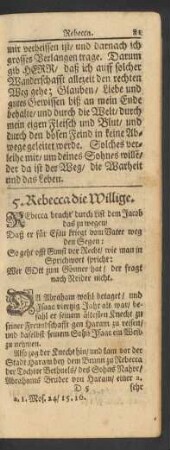 Rebecca. 21
mir verheissen ist/ und darnach ich
grosses Verlangen trage. Darum
gib HERR/ daß ich auff solcher
Wanderschafft allezeit den rechten
Weg gehe; Glauben/ Liebe und
gutes Gewissen biß an mein Ende
behalte/ und durch die Welt/ durch
mein eigen Fleisch und Blut/ und
durch den bösen Feind in keine Ab-
wege geleitet werde. Solches ver-
leihe mir/ um deines Sohnes wille/
der da ist der Weg/ die Warheit
und das Leben.
5. Rebecca die Willige.
Rebecca braucht durch List den Jacob
das zu wegen
Daß er für Esau kriegt vom Vater weg
den Segen:
So geht offt Gunst vor Recht/ wie man in
Sprichwort spricht:
Wer GOtt zum Gönner hat/ der fragt
nach Neider nicht.
DA Abraham wohl betaget/ und
Isaac viertzig Jahr alt war/ be-
fahl er seinem ältesten Knecht zu
seiner Freundschafft gen Haram zu reisen/
und daselbst seinem Sohn Isaac ein Weib
zu nehmen.
Also zog der Knecht hin/ und kam vor der
Stadt Haram bey dem Brunn zu Rebecca
der Tochter Bethuels/ des Sohns Nahor/
Abrahams Bruder von Haram/ einer
D 5 sehr
a. 1. Mos. 24/ 15. 16.